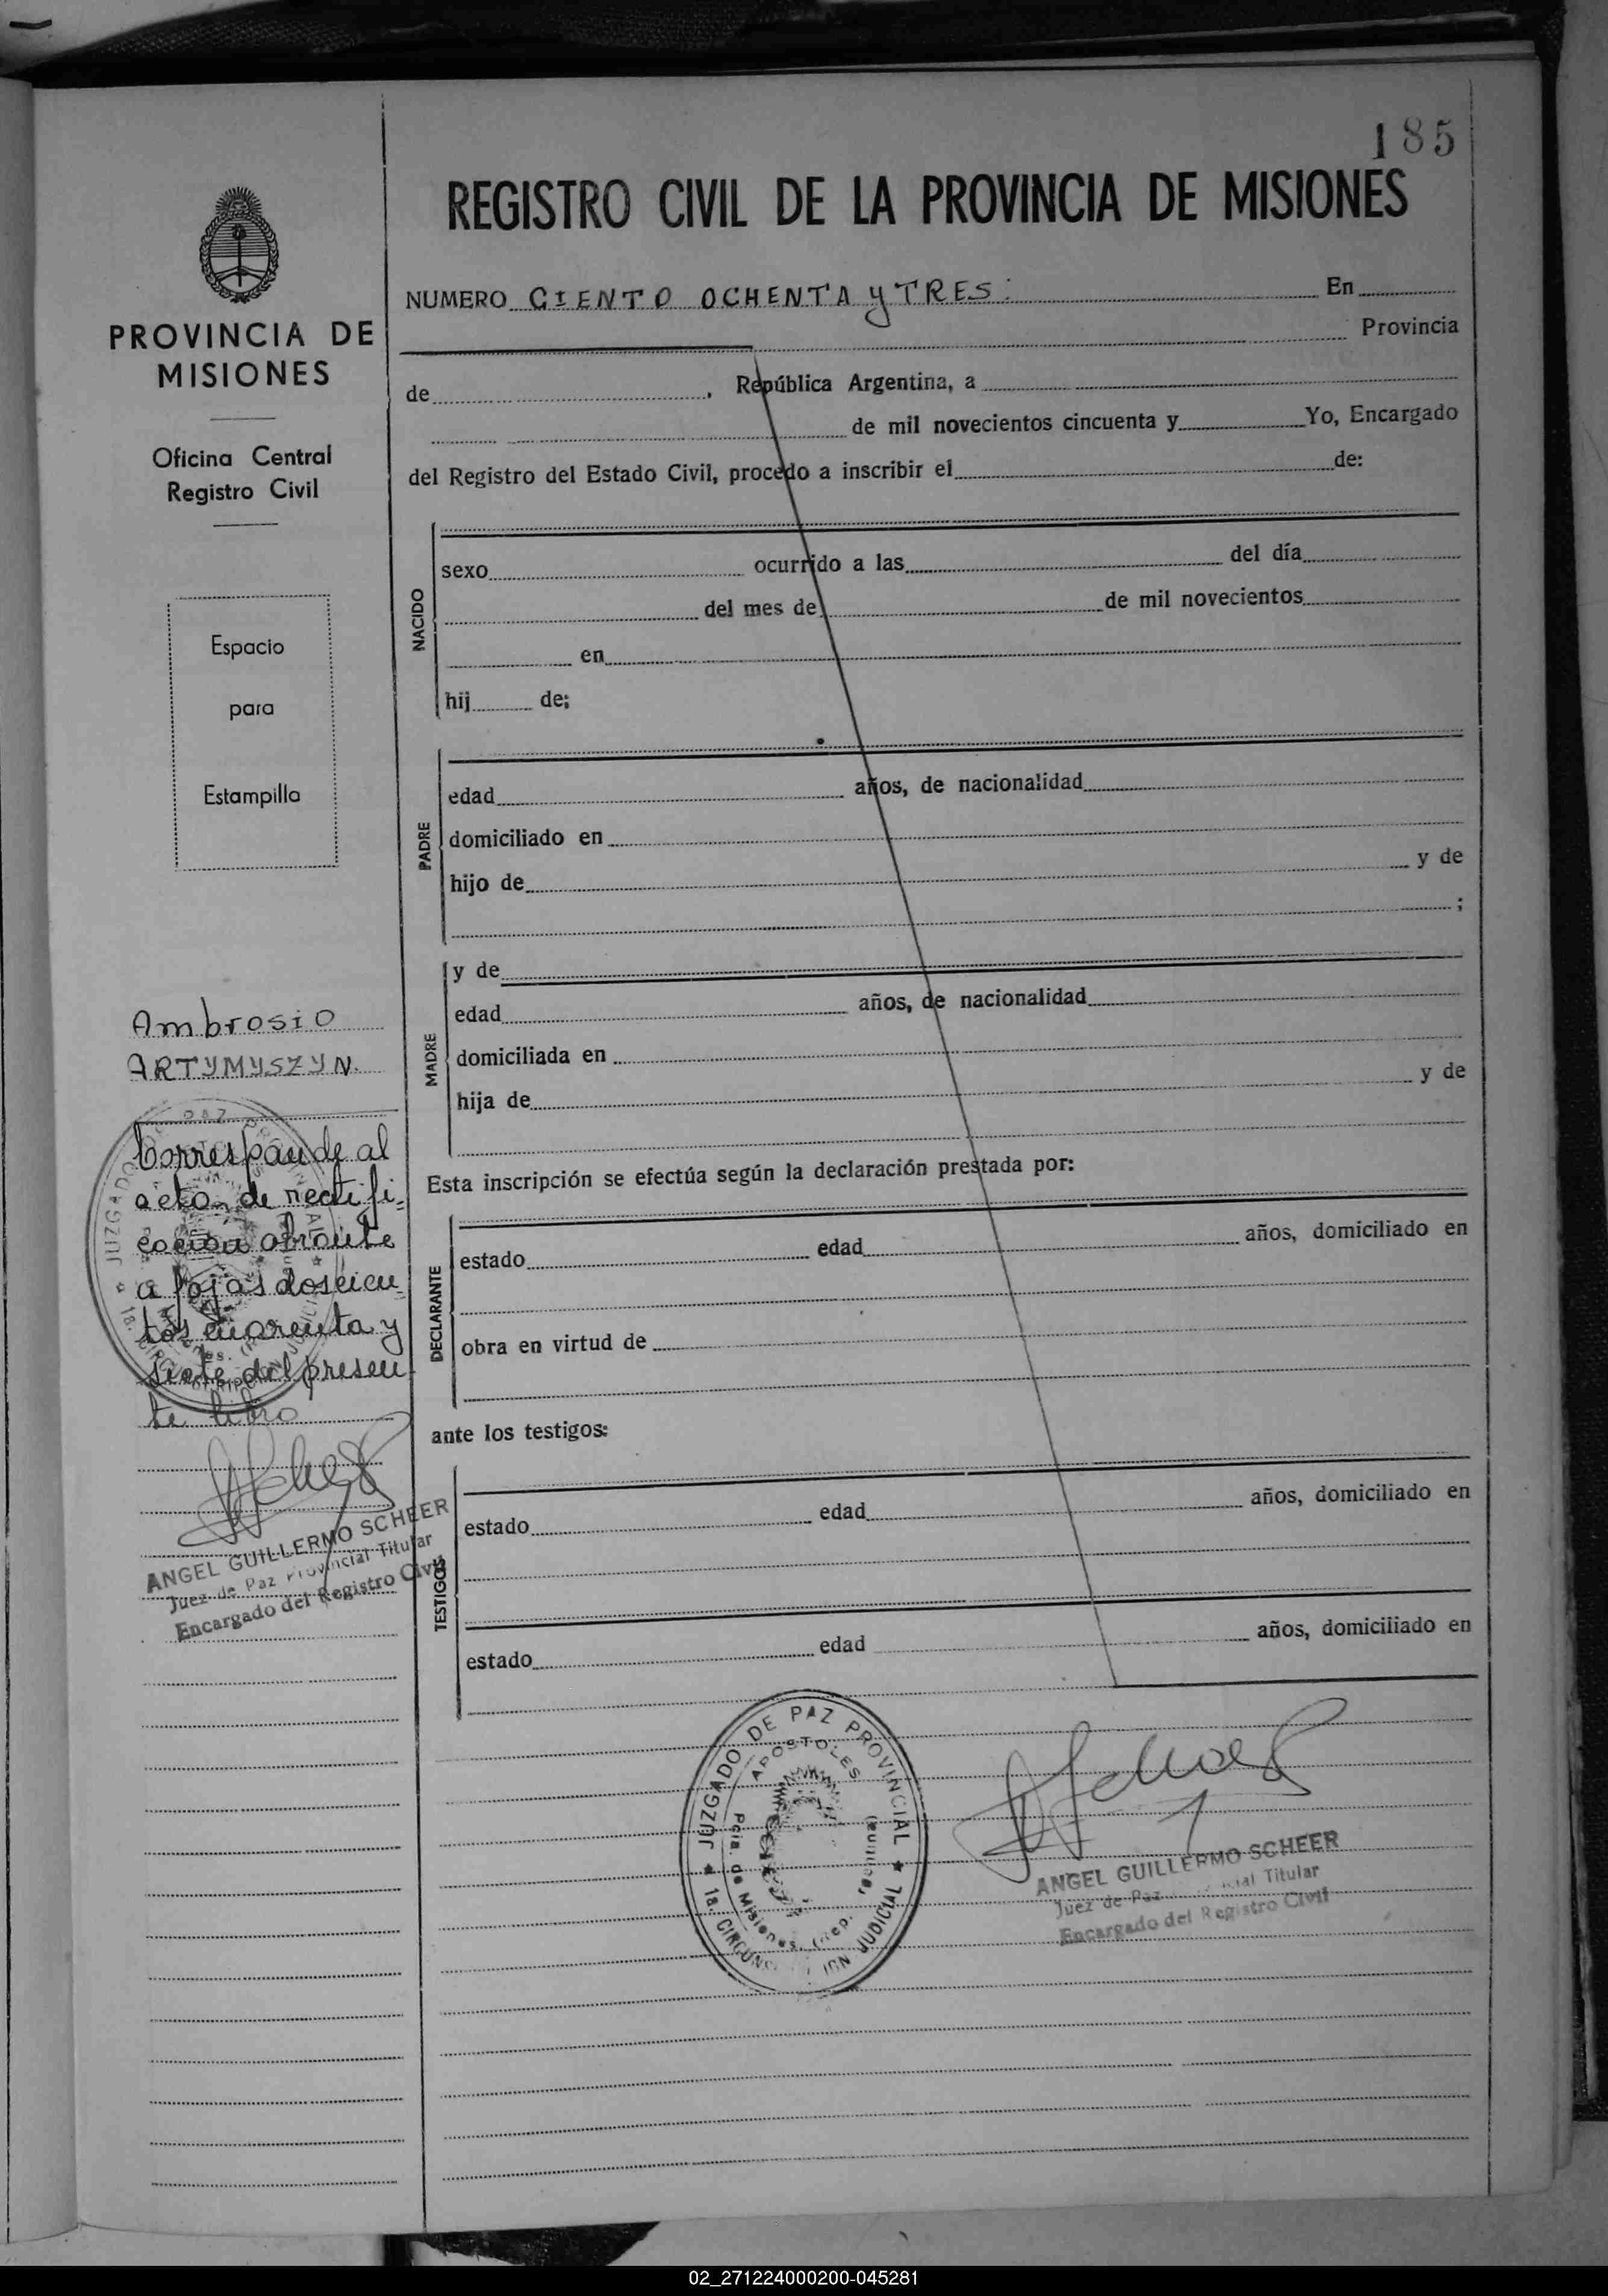 185
REGISTRO CIVIL DE LA PROVINCIA DE MISIONES
NUMERO CIENTO OCHENTA y TRES: En
Provincia
de , República Argentina, a
de mil novecientos cincuenta y Yo, Encargado
del Registro del Estado Civil, procedo a inscribir el de:
NACIDO
sexo ocurrido a las del día
del mes de de mil novecientos
en
hij de;
PADRE
edad años, de nacionalidad
domiciliado en
hijo de y de
;
MADRE
y de
edad años, de nacionalidad
domiciliada en
hija de y de
Esta inscripción se efectúa según la declaración prestada por:
DECLARANTE
estado edad años, domiciliado en
obra en virtud de
ante los testigos:
TESTIGOS
estado edad años, domiciliado en
estado edad años, domiciliado en
JUZGADO DE PAZ PROVINCIAL
APOSTOLES
Pcia. de Misiones. (Rep.
1a. JUDICIAL
ANGEL GUILLERMO SCHEER
Juez de Paz Titular
Encargado del Registro Civil
PROVINCIA DE
MISIONES
Oficina Central
Registro Civil
Espacio
para
Estampilla
Ambrosio
ARTYMYSZYN.
Corresponde al
acta de rectifi-
cación obrante
a fojas doscien-
tos cuarenta y
siete del presen-
te libro
ANGEL GUILLERMO SCHEER
Juez de Paz Provincial Titular
Encargado del Registro Civil
02_271224000200-045281